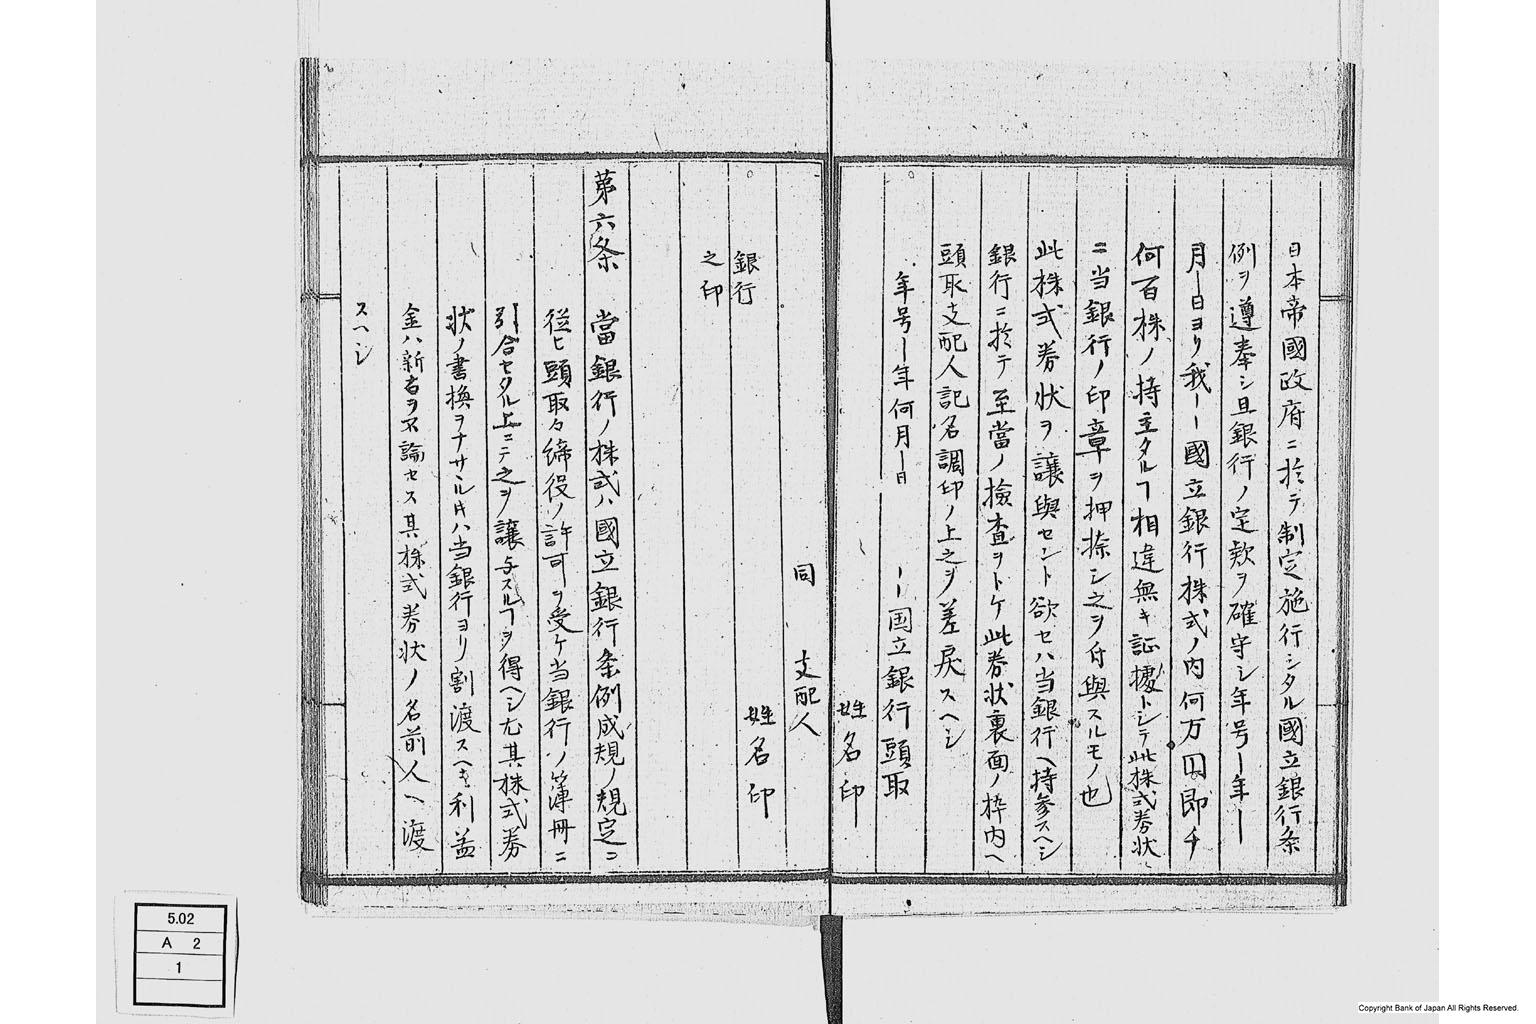 日本帝國政府ニ於テ制定施行シタル國立銀行条
例ヲ遵奉シ且銀行ノ定款ヲ確守シ年号ー年ー
月ー日ヨリ我ーー國立銀行株式ノ内何万円即チ
何百株ノ持主タルヿ相違無キ証拠トシテ此株式券状
ニ当銀行ノ印章ヲ押捺シ之ヲ付與スルモノ也
此株式券状ヲ讓與セント欲セハ当銀行ヘ持参スヘシ
銀行ニ於テ至當ノ撿査ヲトケ此券状裏面ノ枠内ヘ
頭取支配人記名調印ノ上之ヲ差戻スヘシ
年号ー年何月ー日
ーー国立銀行頭取
姓名印
同 支配人
姓名印
銀行
之印
第六条 當銀行ノ株式ハ國立銀行条例成規ノ規定ニ
従ヒ頭取々締役ノ許可ヲ受ケ当銀行ノ簿冊ニ
引合セタル上ニテ之ヲ讓与スルヿヲ得ヘシ尤其株式券
状ノ書換ヲナサヽル内ハ当銀行ヨリ割渡スヘキ利益
金ハ新古ヲ不論セス其株式券状ノ名前人ヘ渡
スヘシ
5.02
A 2
1
Copyright Bank of Japan All Rights Reserved.